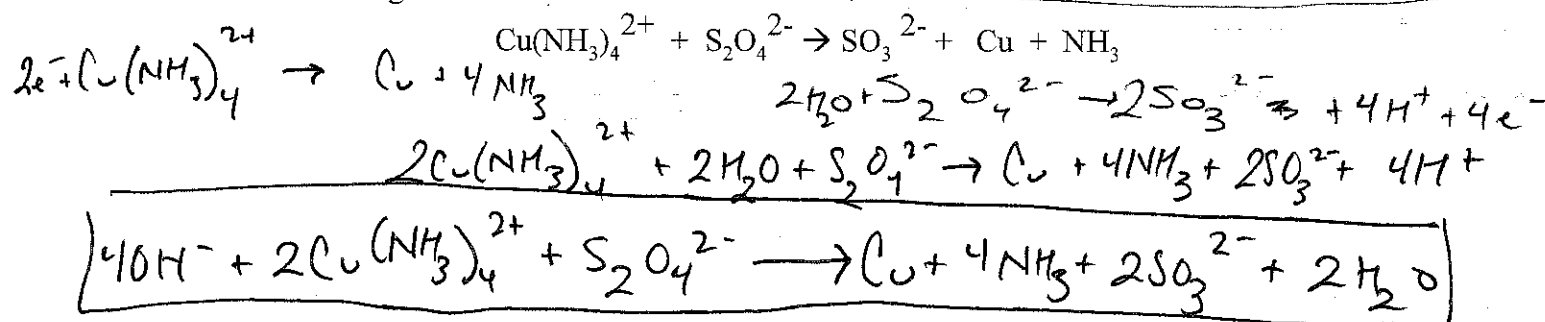 Cu(NH₃)₄²⁺ + S₂O₄²⁻ → SO₃²⁻ + Cu + NH₃
2e⁻ + Cu(NH₃)₄²⁺ → Cu + 4NH₃ 2H₂O + S₂O₄²⁻ → 2SO₃²⁻ + 4H⁺ + 4e⁻
2Cu(NH₃)₄²⁺ + 2H₂O + S₂O₄²⁻ → Cu + 4NH₃ + 2SO₃²⁻ + 4H⁺
4OH⁻ + 2Cu(NH₃)₄²⁺ + S₂O₄²⁻ → Cu + 4NH₃ + 2SO₃²⁻ + 2H₂O